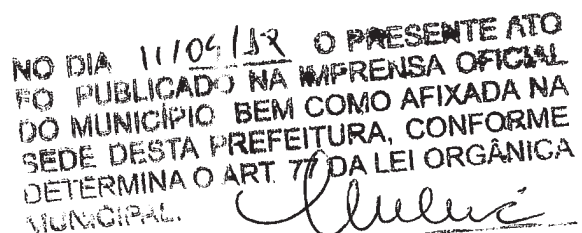 NO DIA 11/09/12 O PRESENTE ATO
FO PUBLICADO NA IMPRENSA OFICIAL
DO MUNICÍPIO BEM COMO AFIXADA NA
SEDE DESTA PREFEITURA, CONFORME
DETERMINA O ART. 77 DA LEI ORGÂNICA
MUNICIPAL.